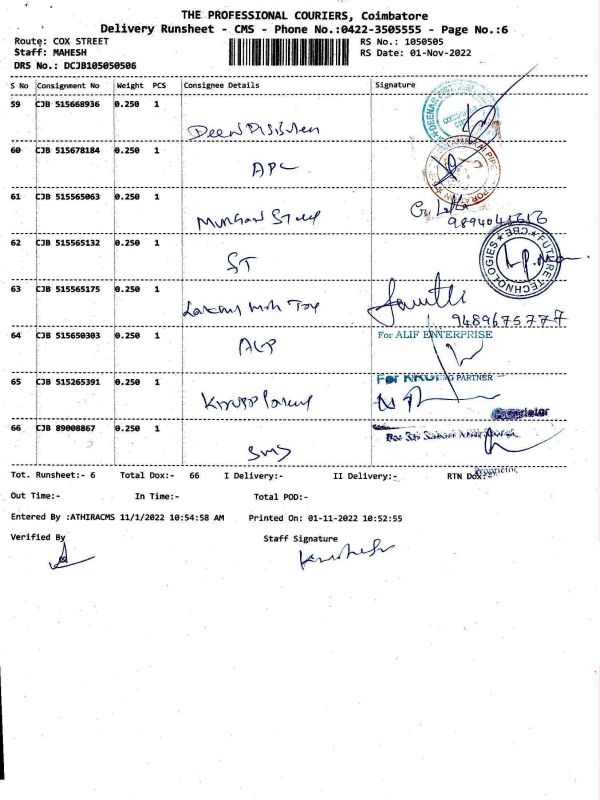 THE PROFESSIONAL COURIERS, Coimbatore
Delivery Runsheet - CMS - Phone No.:0422-3505555 - Page No.:6
Route: COX STREET
RS No.: 1050505
Staff: MAHESH
RS Date: 01-Nov-2022
DRS No.: DCJB105050506
S No Consignment No Weight PCS Consignee Details Signature
59 CJB 515668936 0.250 1
60 CJB 515678184 0.250 1
APL
61 CJB 515565063 0.250 1
Murugan Steel
9894041616
62 CJB 515565132 0.250 1
ST
FUTURE TECHNOLOGIES ★ CBE ★
63 CJB 515565175 0.250 1
9489675777
64 CJB 515650303 0.250 1
ALP
For ALIF ENTERPRISE
65 CJB 515265391 0.250 1
PARTNER
For
Proprietor
66 CJB 89008867 0.250 1
SMS
Proprietor
Tot. Runsheet:- 6 Total Dox:- 66 I Delivery:- II Delivery:- RTN Dox:-
Out Time:- In Time:- Total POD:-
Entered By :ATHIRACMS 11/1/2022 10:54:58 AM Printed On: 01-11-2022 10:52:55
Verified By Staff Signature